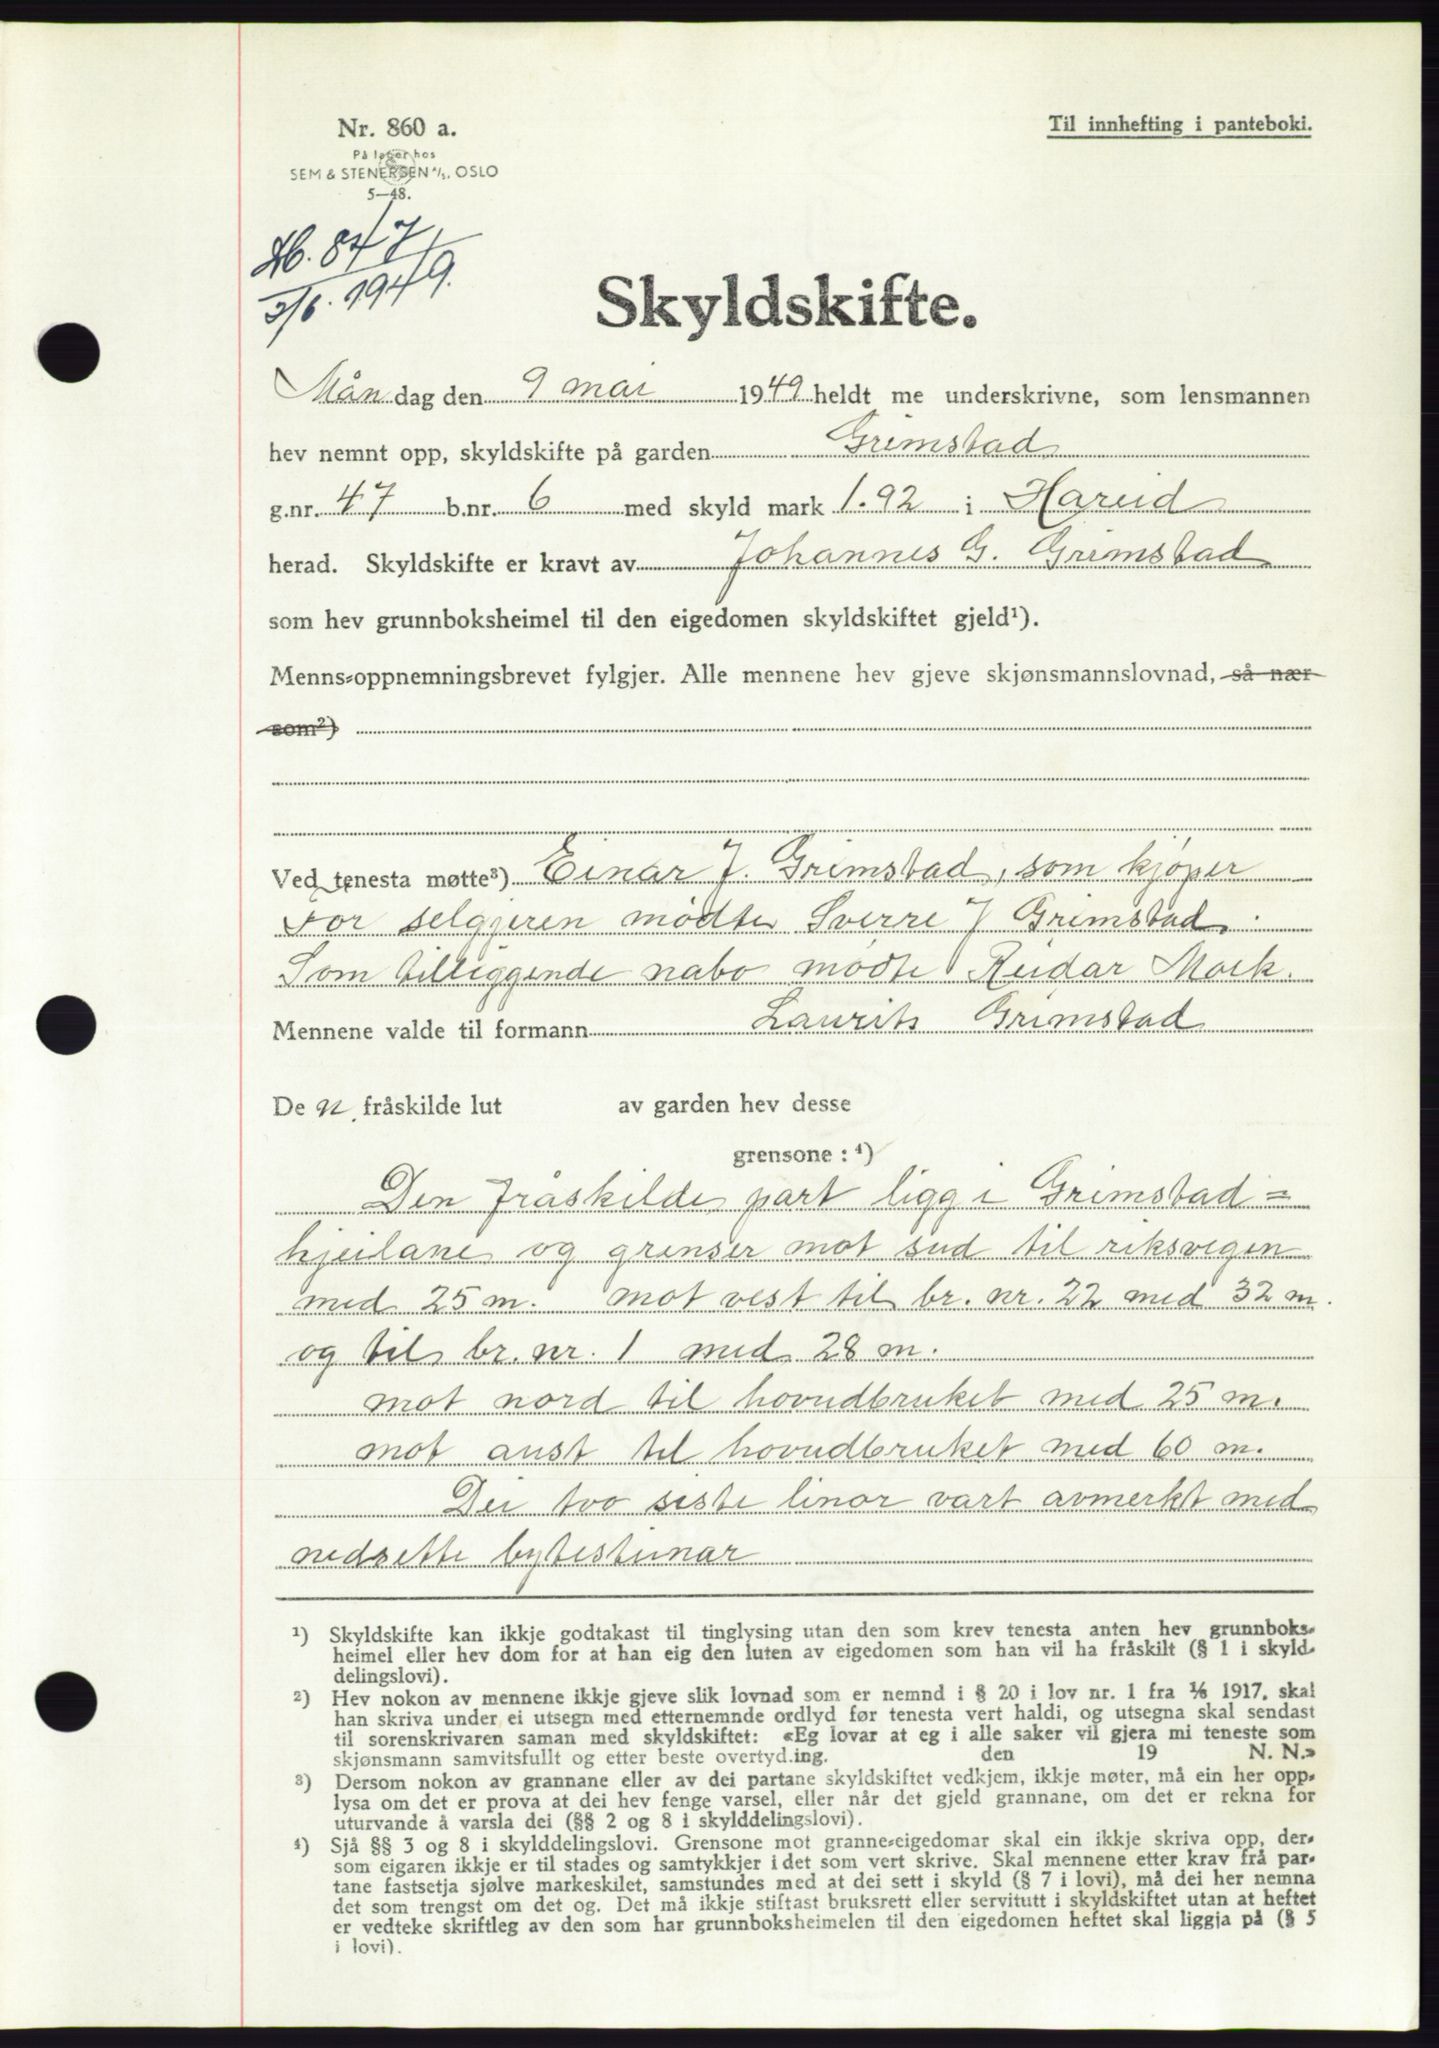 Nr. 860 a.
Til innhefting i panteboki.
På lager hos
SEM & STENERSEN A/S, OSLO
5—48.
Db. 847
3/6. 1949.
Skyldskifte.
Måndag den 9 mai 1949 heldt me underskrivne, som lensmannen
hev nemnt opp, skyldskifte på garden Grimstad
g.nr. 47 b.nr. 6 med skyld mark 1.92 i Hareid
herad. Skyldskifte er kravt av Johannes G. Grimstad
som hev grunnboksheimel til den eigedomen skyldskiftet gjeld¹).
Menns-oppnemningsbrevet fylgjer. Alle mennene hev gjeve skjønsmannslovnad, så nær
som²)
Ved tenesta møtte³) Einar J. Grimstad, som kjøper
For selgjeren mødte Sverre J Grimstad.
Som tilliggende nabo mødte Reidar Mork.
Mennene valde til formann Laurits Grimstad
De n fråskilde lut av garden hev desse
grensone: ⁴)
Den fråskilde part ligg i Grimstad=
hjeilane og grenser mot sud til riksvegen
med 25 m. mot vest til br. nr. 22 med 32 m.
og til br. nr. 1 med 28 m.
mot nord til hovudbruket med 25 m.
mot aust til hovudbruket med 60 m.
Dei tvo siste linor vart avmerkt med
nedsette bytesteinar
¹) Skyldskifte kan ikkje godtakast til tinglysing utan den som krev tenesta anten hev grunnboks-
heimel eller hev dom for at han eig den luten av eigedomen som han vil ha fråskilt (§ 1 i skyld-
delingslovi).
²) Hev nokon av mennene ikkje gjeve slik lovnad som er nemnd i § 20 i lov nr. 1 fra 1/6 1917, skal
han skriva under ei utsegn med etternemnde ordlyd før tenesta vert haldi, og utsegna skal sendast
til sorenskrivaren saman med skyldskiftet: «Eg lovar at eg i alle saker vil gjera mi teneste som
skjønsmann samvitsfullt og etter beste overtyd.ing. den 19 N. N.»
³) Dersom nokon av grannane eller av dei partane skyldskiftet vedkjem, ikkje møter, må ein her opp-
lysa om det er prova at dei hev fenge varsel, eller når det gjeld grannane, om det er rekna for
uturvande å varsla dei (§§ 2 og 8 i skylddelingslovi).
⁴) Sjå §§ 3 og 8 i skylddelingslovi. Grensone mot granne-eigedomar skal ein ikkje skriva opp, der-
som eigaren ikkje er til stades og samtykkjer i det som vert skrive. Skal mennene etter krav frå par-
tane fastsetja sjølve markeskilet, samstundes med at dei sett i skyld (§ 7 i lovi), må dei her nemna
det som trengst om det og. Det må ikkje stiftast bruksrett eller servitutt i skyldskiftet utan at heftet
er vedteke skriftleg av den som har grunnboksheimelen til den eigedomen heftet skal liggja på (§ 5
i lovi).